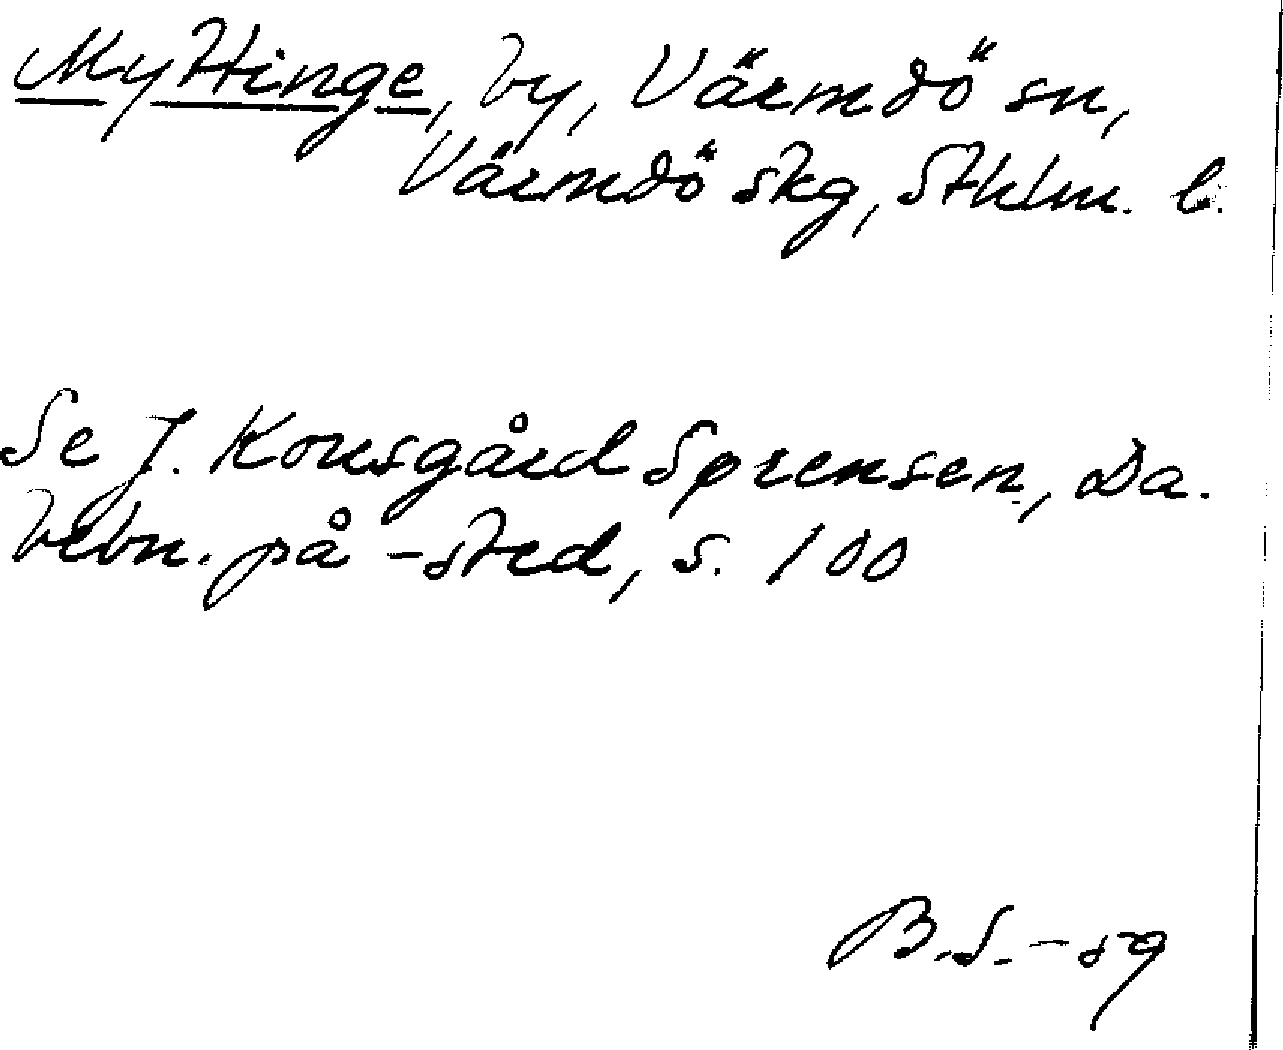 Myttinge, by, Värmdö sn,
Värmdö skg, Sthlm. l.
Se J. Kousgård Sørensen, Da.
bebn. på -sted, s. 100
B.S.-sg